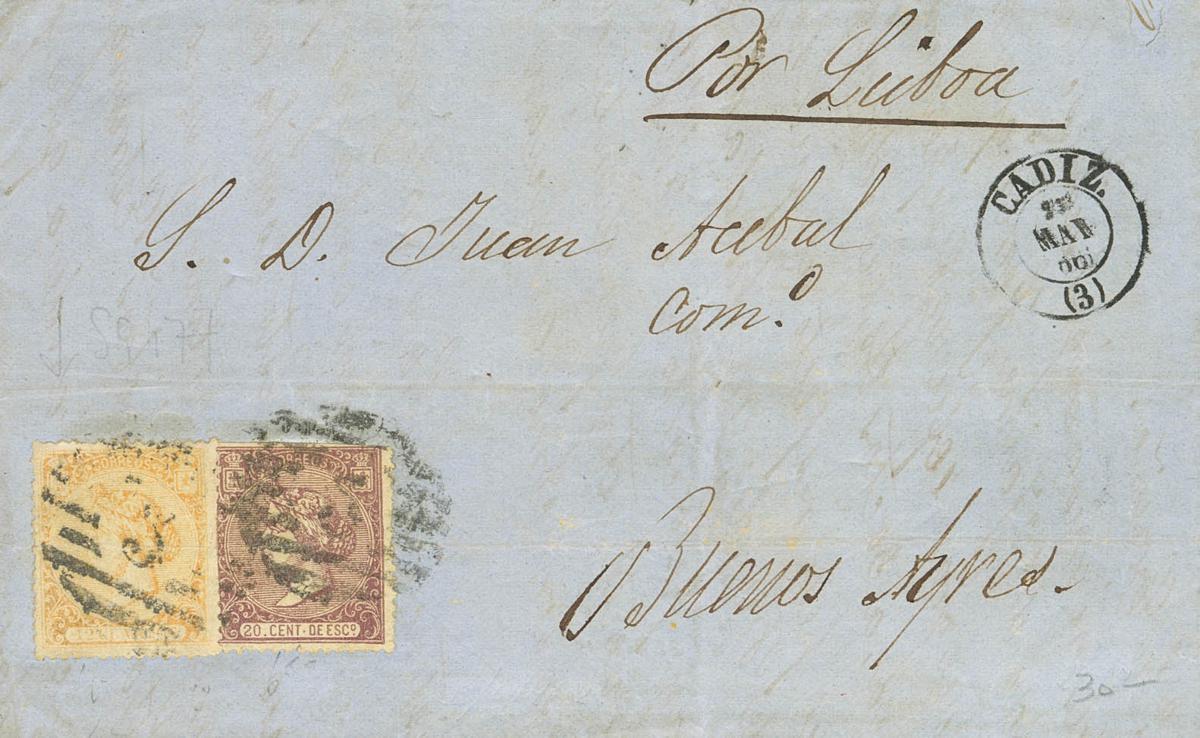 Por Lisboa
CADIZ.
MAR
(3)
S. D. Juan Acebal
Com.º
CORREOS
CORREOS
20. CENT. DE ESCº
Buenos Ayres.
30 —